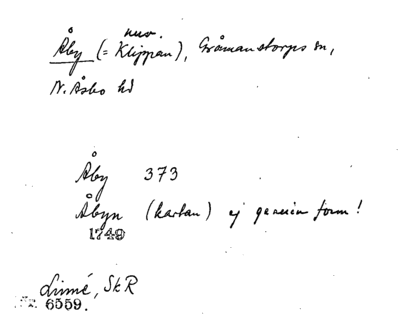 nuv.
Åby (= Klippan), Gråmanstorps sn,
N. Åsbo hd
Åby 373
Åbyn (kartan) ej genuin form!
1749
Linné, SkR
6559.